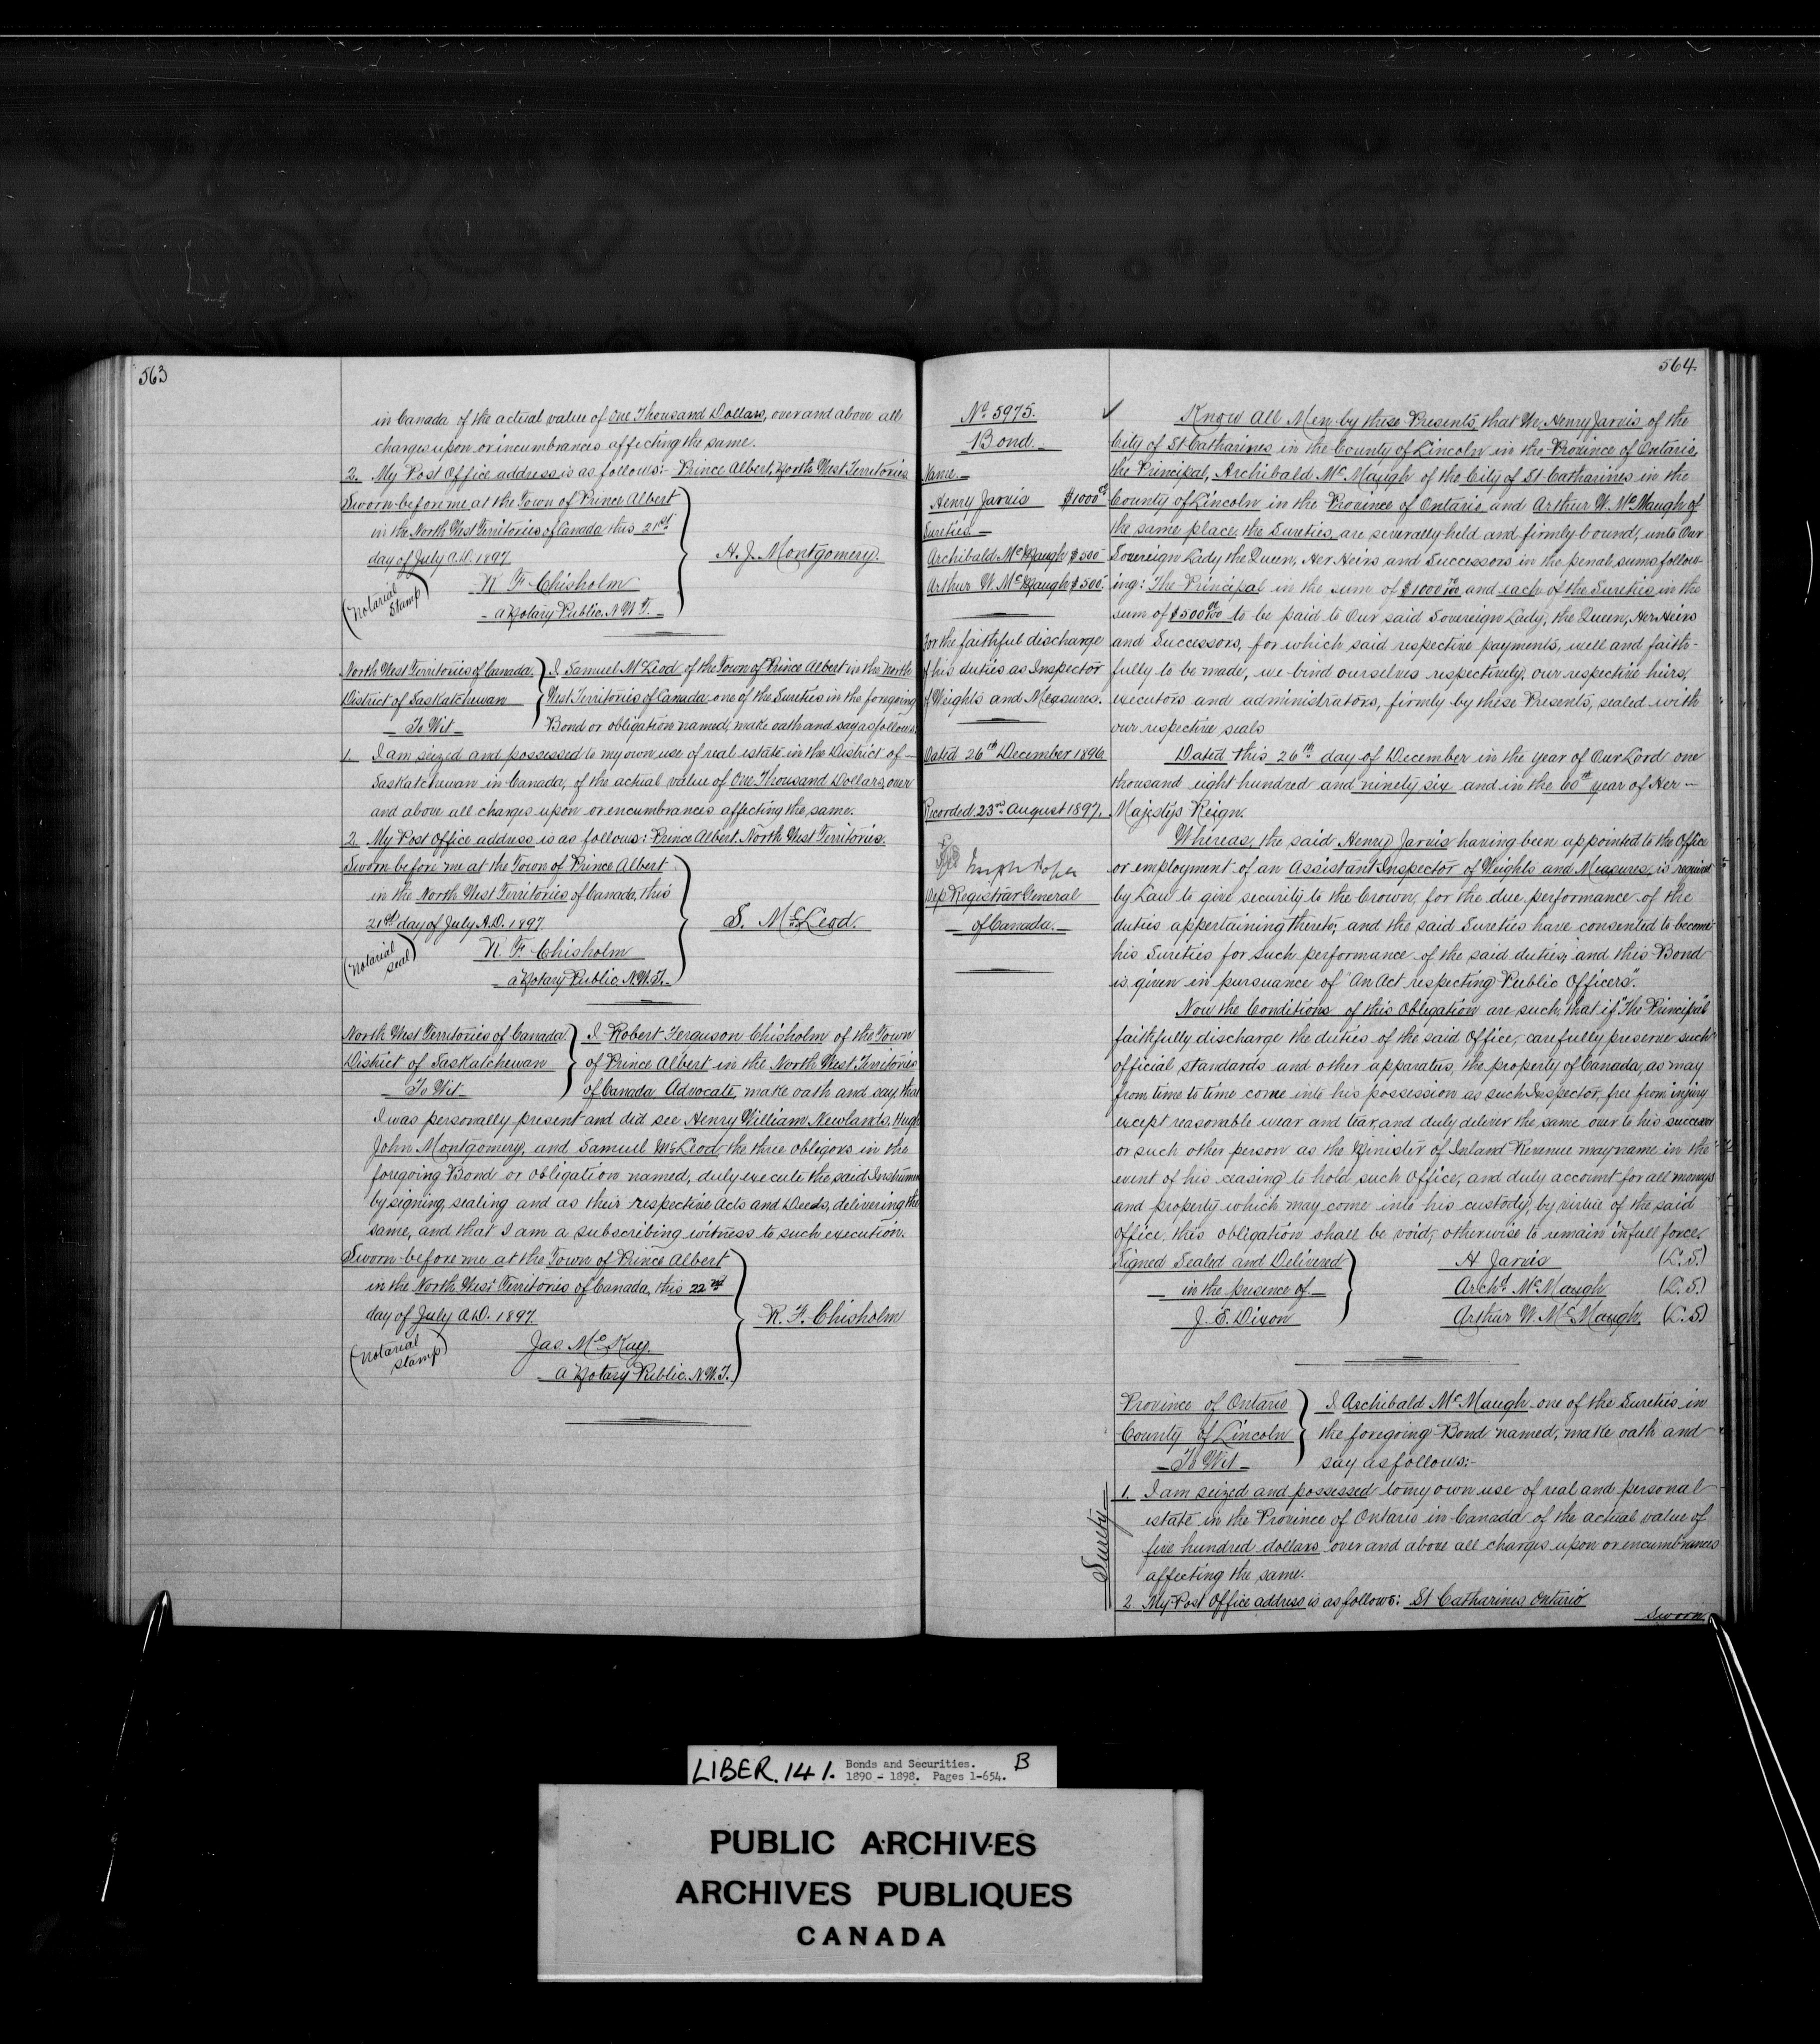 563
in Canada of the actual value of One Thousand Dollars, over and above all
charges upon or incumbrances affecting the same.
2. My Post Office address is as follows:- Prince Albert, North West Territories
Sworn before me at the Town of Prince Albert
in the North West Territories of Canada this 21st
day of July A.D. 1897
H. J. Montgomery.
R. F. Chisholm
a Notary Public. N.W.T.
(Notarial Stamp)
North West Territories of Canada.
District of Saskatchewan
To Wit
I, Samuel McLeod of the Town of Prince Albert in the North
West Territories of Canada one of the Sureties in the foregoing
Bond or obligation named, make oath and say as follows
1. I am seized and possessed to my own use of real estate in the District of
Saskatchewan in Canada, of the actual value of One Thousand Dollars, over
and above all charges upon or encumbrances affecting the same.
2. My Post Office address is as follows: Prince Albert. North West Territories.
Sworn before me at the Town of Prince Albert
in the North West Territories of Canada, this
21st day of July A.D. 1897
S. McLeod.
R. F. Chisholm
a Notary Public. N.W.T.
(Notarial seal)
North West Territories of Canada
District of Saskatchewan
To Wit
I Robert Ferguson Chisholm of the Town
of Prince Albert in the North West Territories
of Canada Advocate, make oath and say, that
I was personally present and did see Henry William Newlands, Hugh
John Montgomery, and Samuel McLeod the three obligors in the
foregoing Bond or obligation named, duly execute the said Instrumen
by signing, sealing and as their respective Acts and Deeds, delivering the
same, and that I am a subscribing witness to such execution.
Sworn before me at the Town of Prince Albert
in the North West Territories of Canada, this 22nd
day of July A.D. 1897.
R. F. Chisholm
Jas McKay.
a Notary Public. N.W.T.
(Notarial stamp)
564
No. 5975.
Bond.
Name
Henry Jarvis $1000 00
Sureties.
Archibald McMaugh $500
Arthur W. McMaugh $500
For the faithful discharge
of his duties as Inspector
of Weights and Measures.
Dated 26th December 1896
Recorded 23rd August 1897.
Joseph Pope
Dep Registrar General
of Canada.
Know All Men by these Presents, that We, Henry Jarvis of the
City of St Catharines in the County of Lincoln in the Province of Ontario,
the Principal, Archibald McMaugh of the City of St Catharines in the
County of Lincoln in the Province of Ontario and Arthur W. McMaugh of
the same place, the Sureties are severally held and firmly bound, unto Our
Sovereign Lady the Queen, Her Heirs and Successors in the penal sums follow-
ing: The Principal in the sum of $1000 00/100 and each of the Sureties in the
sum of $500 00/100 to be paid to Our said Sovereign Lady, the Queen, Her Heirs
and Successors, for which said respective payments, well and faith-
fully to be made, we bind ourselves respectively, our respective heirs,
executors and administrators, firmly by these Presents, sealed with
our respective seals
Dated this 26th day of December in the year of Our Lord one
thousand eight hundred and ninety six and in the 60th year of Her
Majestys Reign.
Whereas, the said Henry Jarvis having been appointed to the Office
or employment of an Assistant Inspector of Weights and Measures, is required
by Law to give security to the Crown, for the due performance of the
duties appertaining thereto; and the said Sureties have consented to become
his Sureties for such performance of the said duties; and this Bond
is given in pursuance of "An Act respecting Public Officers".
Now the Conditions of this Obligation are such, that if The Principal
faithfully discharge the duties of the said Office, carefully preserve such
official standards and other apparatus, the property of Canada, as may
from time to time come into his possession as such Inspector, free from injury
except reasonable wear and tear, and duly deliver the same over to his successor
or such other person as the Minister of Inland Revenue may name in the
event of his ceasing to hold such Office, and duly account for all moneys
and property which may come into his custody, by virtue of the said
Office, this obligation shall be void; otherwise to remain in full force.
Signed Sealed and Delivered
in the presence of
J. E. Dixon
H Jarvis (L.S.)
Archd. McMaugh (L.S.)
Arthur W. McMaugh. (L.S)
Province of Ontario
County of Lincoln
To Wit
I, Archibald McMaugh one of the Sureties in
the foregoing Bond named, make oath and
say as follows:-
Surety
1. I am seized and possessed to my own use of real and personal
estate in the Province of Ontario in Canada of the actual value of
five hundred dollars over and above all charges upon or encumbrances
affecting the same.
2 My Post Office address is as follows: St Catharines Ontario
Sworn
LIBER. 141. Bonds and Securities.
1890 - 1898. Pages 1-654. B
PUBLIC ARCHIVES
ARCHIVES PUBLIQUES
CANADA